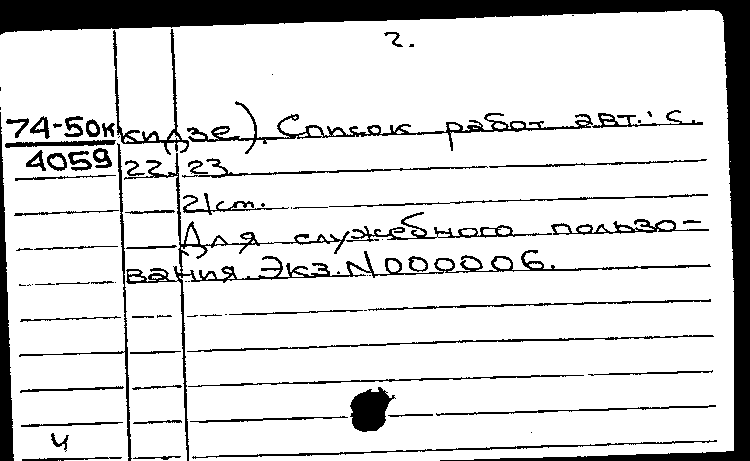 2.
74-50к кидзе). Список работ авт.: с.
4059 22, 23.
21 cm.
Для служебного пользо-
вания. Экз. N 000006.
ч